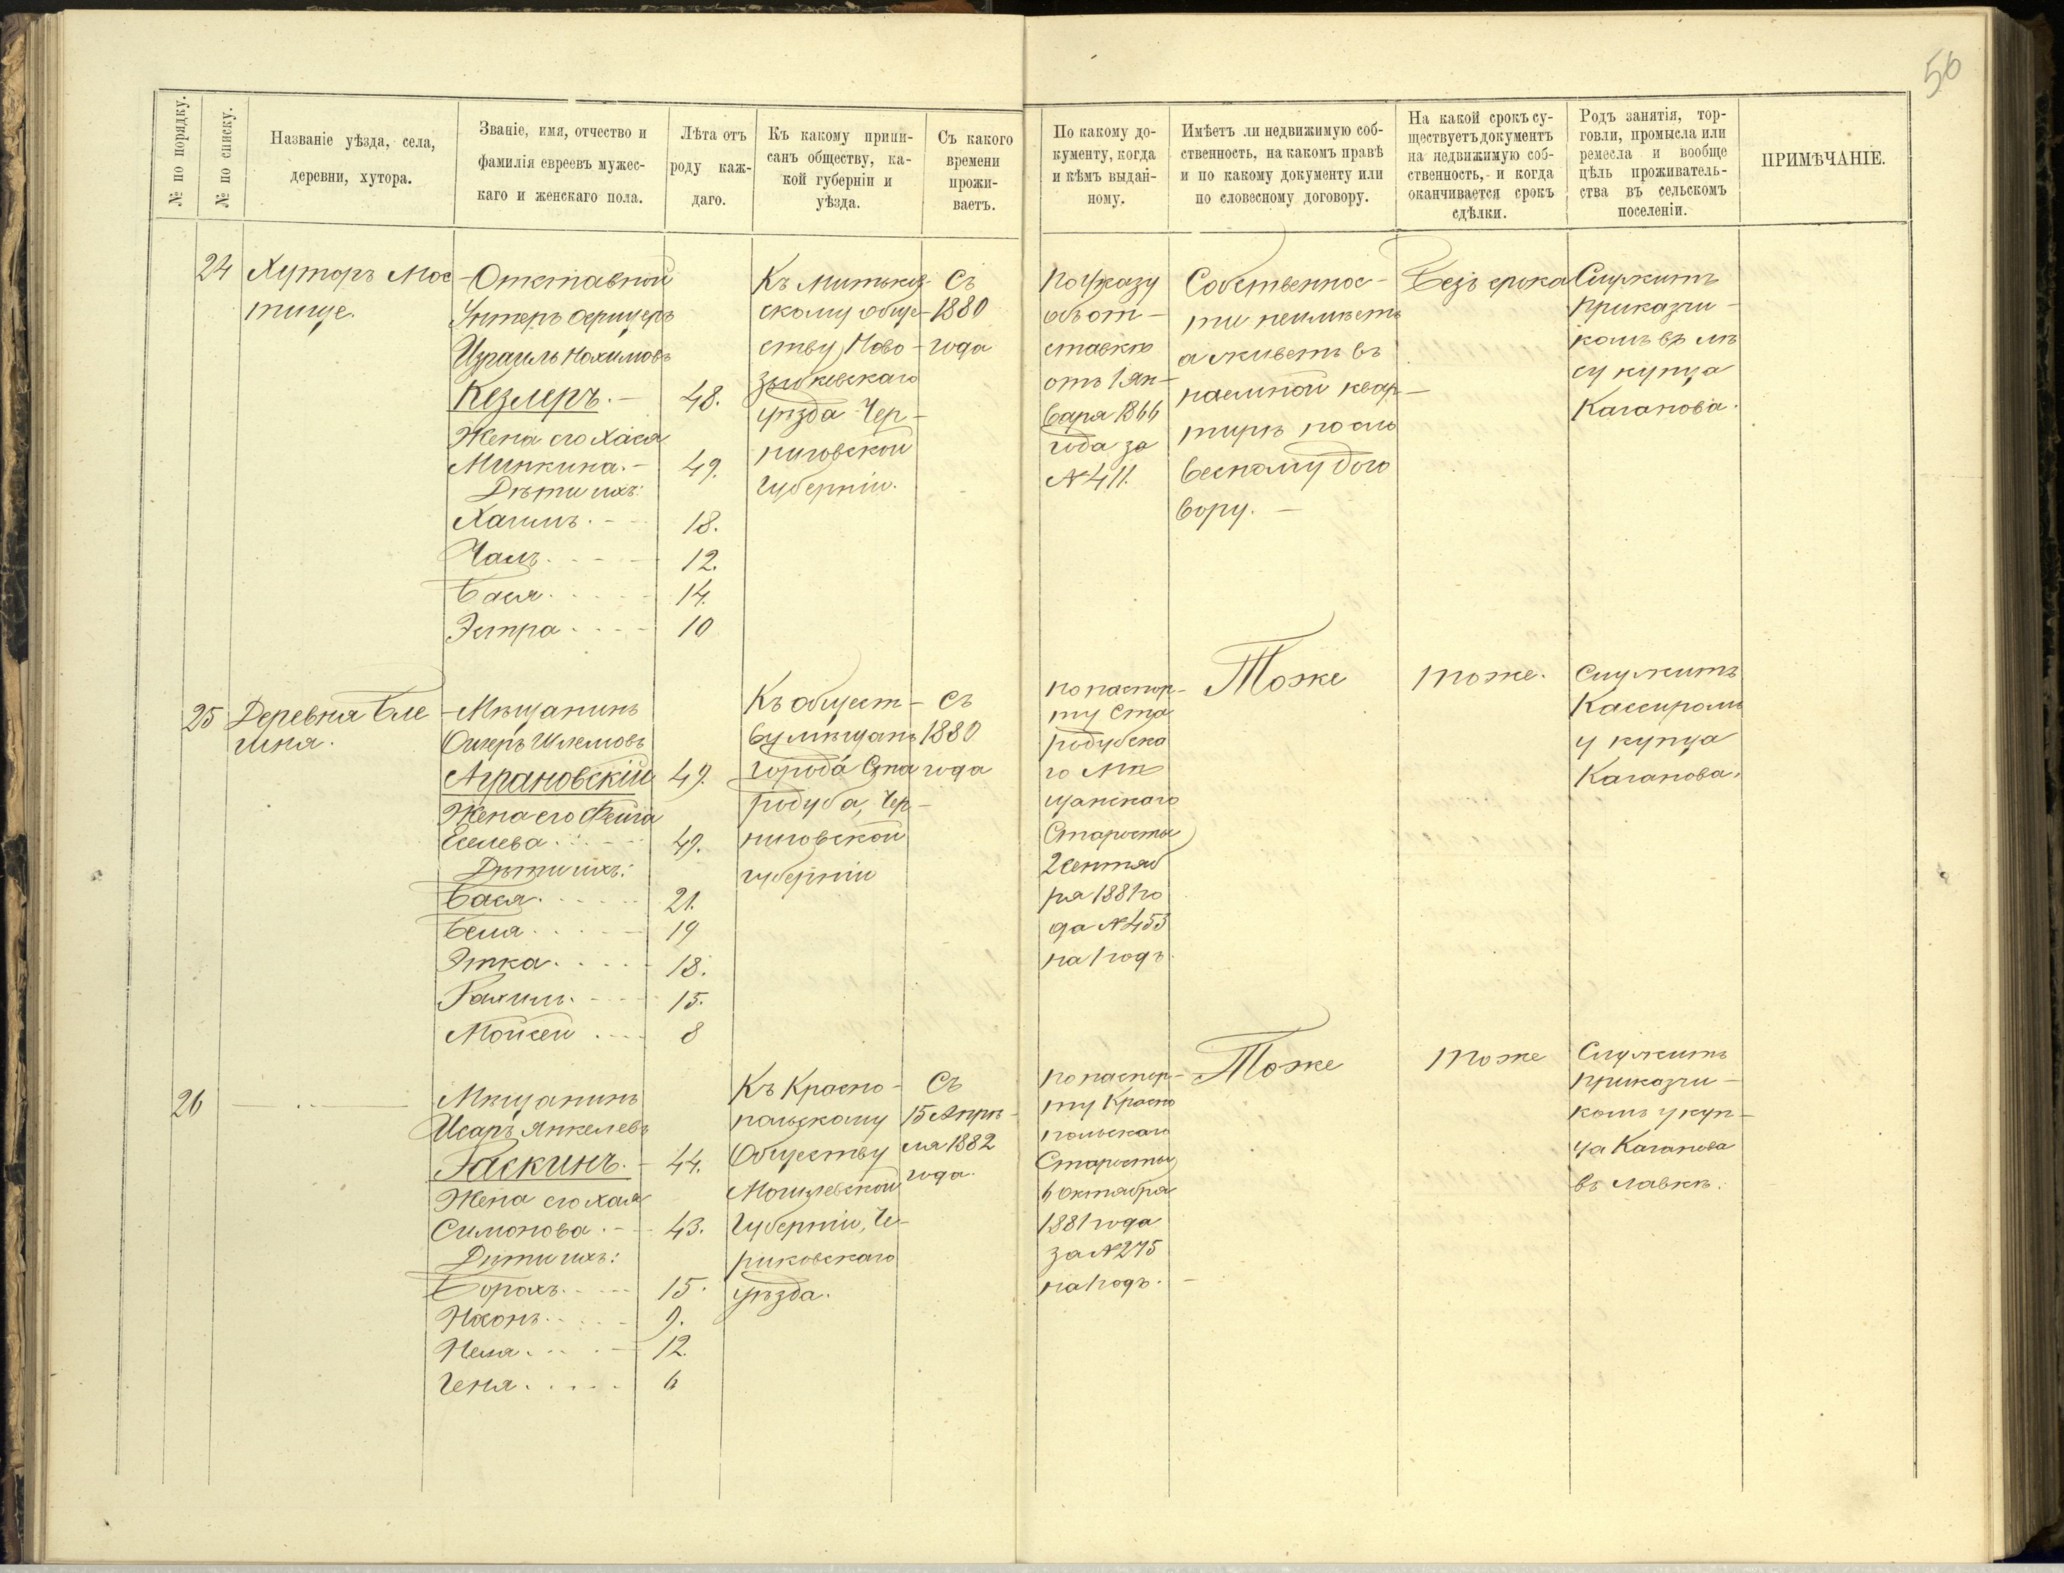 56
№ по порядку.
№ по списку.
Названіе уѣзда, села,
деревни, хутора.
Званіе, имя, отчество и
фамилія евреевъ мужес-
каго и женскаго пола.
Лѣта отъ
роду каж-
даго.
Къ какому припи-
санъ обществу, ка-
кой губерніи и
уѣзда.
Съ какого
времени
прожи-
ваетъ.
По какому до-
кументу, когда
и кѣмъ выдан-
ному.
Имѣетъ ли недвижимую соб-
ственность, на какомъ правѣ
и по какому документу или
по словесному договору.
На какой срокъ су-
ществуетъ документъ
на недвижимую соб-
ственность, и когда
оканчивается срокъ
сдѣлки.
Родъ занятія, тор-
говли, промысла или
ремесла и вообще
цѣль проживатель-
ства въ сельскомъ
поселеніи.
ПРИМѢЧАНІЕ.
24
Хуторъ Мос
тище.
Отставной
Унтеръ офицеръ
Израиль Нохимовъ
Кезлеръ. 48.
Жена его Хася
Минкина. 49.
Дѣти ихъ:
Хаимъ. 18.
12.
Бася. 14.
Эстра 10
Къ Митьков-
скому обще-
ству, Ново-
зыбковскаго
уѣзда Чер-
ниговской
губерніи.
Съ
1880
года
По Указу
объ от-
ставкѣ
отъ 1 Ян-
варя 1866
года за
№ 411.
Собственнос-
ти неимѣетъ
а живетъ въ
наемной квар-
тирѣ по сло
весному дого
вору.
Безъ срока
Служитъ
приказчи-
комъ въ лѣ
су купца
Каганова.
25
Деревня Бле
шня.
Мѣщанинъ
Ошеръ Шлемовъ
Аграновскій 49.
Жена его Фейга
Еселева. 49.
Дѣти ихъ:
Бася. 21.
Беля. 19
Этка. 18.
Рахиль. 15.
Мойсей 8
Къ общест-
ву мѣщанъ
города Ста
родуба, Чер-
ниговской
губерніи
Съ
1880
года
по паспор-
ту Ста
родубска
го Мѣ
щанскаго
Старосты
2 Сентяб
ря 1881 го
да № 453
на 1 годъ
Тоже
тоже.
Служитъ
Кассиромъ
у купца
Каганова.
26
Мѣщанинъ
Исаръ Янкелевъ
Раскинъ. 44.
Жена его Хая
Симонова. 43.
Дѣти ихъ:
Борохъ. 15.
9.
Неля. 12.
Геня. 6
Къ Красно-
польскому
Обществу
Могилевской
Губерніи, Че-
риковскаго
уѣзда.
Съ
15 Апрѣ-
ля 1882
года.
по паспор-
ту Красно
польскаго
Старосты
6 октября
1881 года
за № 275
на 1 годъ.
Тоже
тоже
Служитъ
приказчи-
комъ у куп-
ца Каганова
въ лавкѣ.